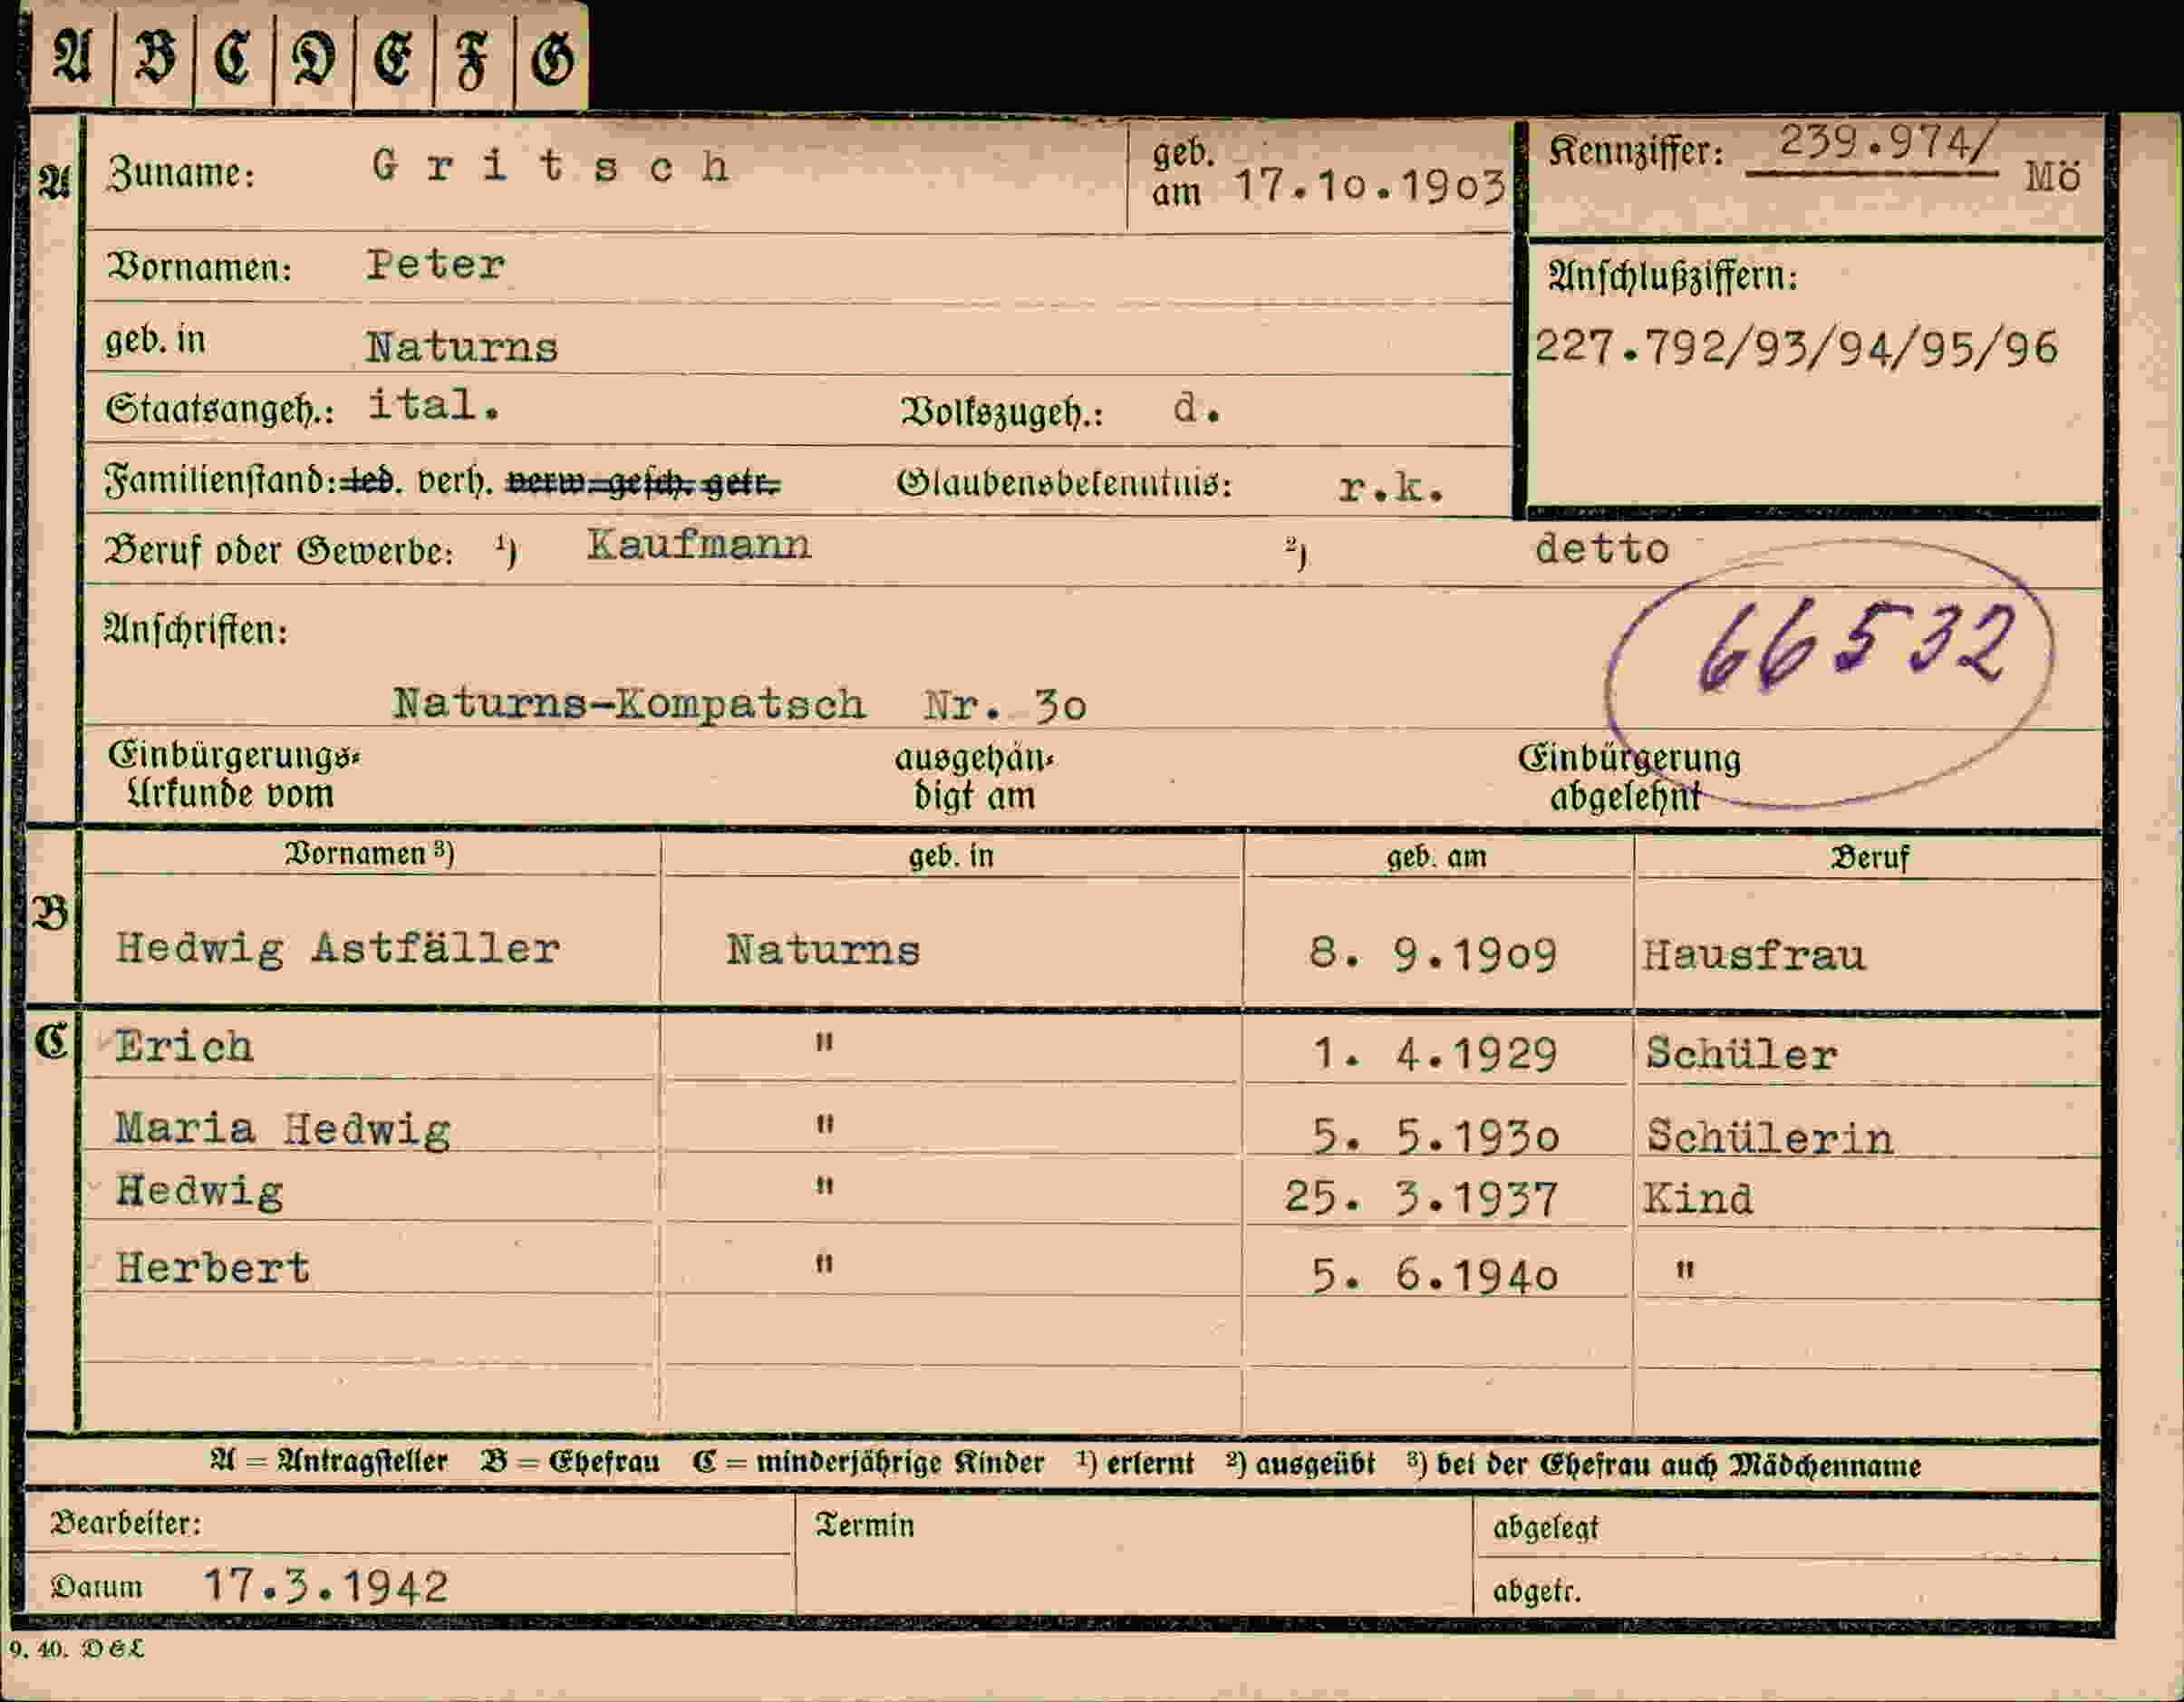 A B C D E F G
A Zuname: Gritsch geb. am 17.10.1903 Kennziffer: 239.974/ Mö
Vornamen: Peter
Anschlußziffern:
geb. in Naturns 227.792/93/94/95/96
Staatsangeh.: ital. Volkszugeh.: d.
Familienstand: led. verh. verw. gesch. getr. Glaubensbekenntnis: r.k.
Beruf oder Gewerbe: ¹) Kaufmann ²) detto
Anschriften: 66532
Naturns-Kompatsch Nr. 30
Einbürgerungs- ausgehän- Einbürgerung
Urkunde vom digt am abgelehnt
Vornamen ³) geb. in geb. am Beruf
B Hedwig Astfäller Naturns 8. 9.1909 Hausfrau
C Erich " 1. 4.1929 Schüler
Maria Hedwig " 5. 5.1930 Schülerin
Hedwig " 25. 3.1937 Kind
Herbert " 5. 6.1940 "
A = Antragsteller B = Ehefrau C = minderjährige Kinder ¹) erlernt ²) ausgeübt ³) bei der Ehefrau auch Mädchenname
Bearbeiter: Termin abgelegt
Datum 17.3.1942 abgetr.
9. 40. DEL